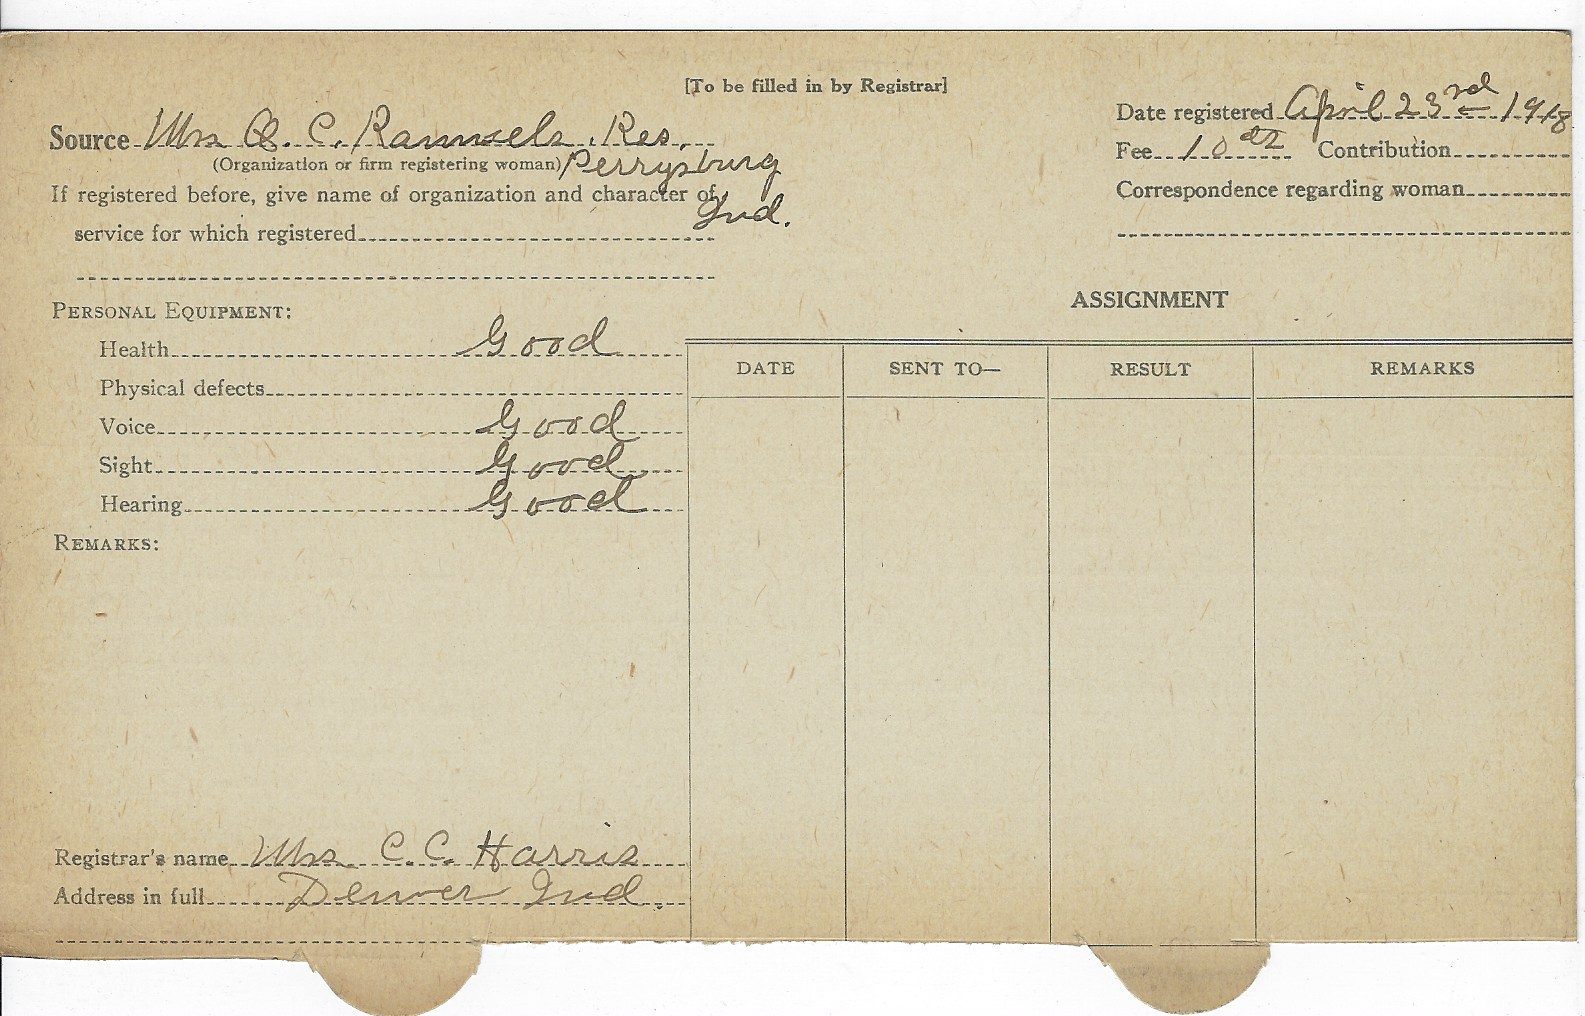 [To be filled in by Registrar]
Source Mrs C. Res.
(Organization or firm registering woman) Perrysburg
If registered before, give name of organization and character of Ind.
service for which registered
Date registered April 23rd 1918
Fee 10 cts Contribution
Correspondence regarding woman
PERSONAL EQUIPMENT:
Health Good
Physical defects
Voice Good
Sight Good
Hearing Good
REMARKS:
ASSIGNMENT
DATE SENT TO— RESULT REMARKS
Registrar's name Mrs C. C. Harris
Address in full Denver Ind.